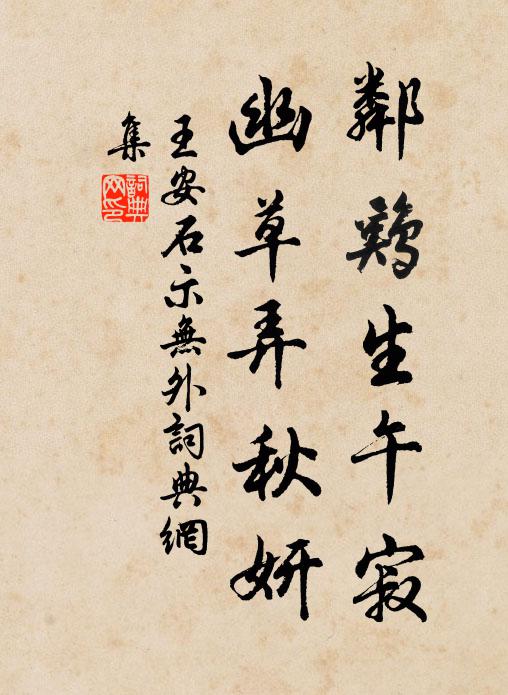 鄰鷄生午寂
幽草弄秋妍
王安石示無外詞典網
集
詞典
网印